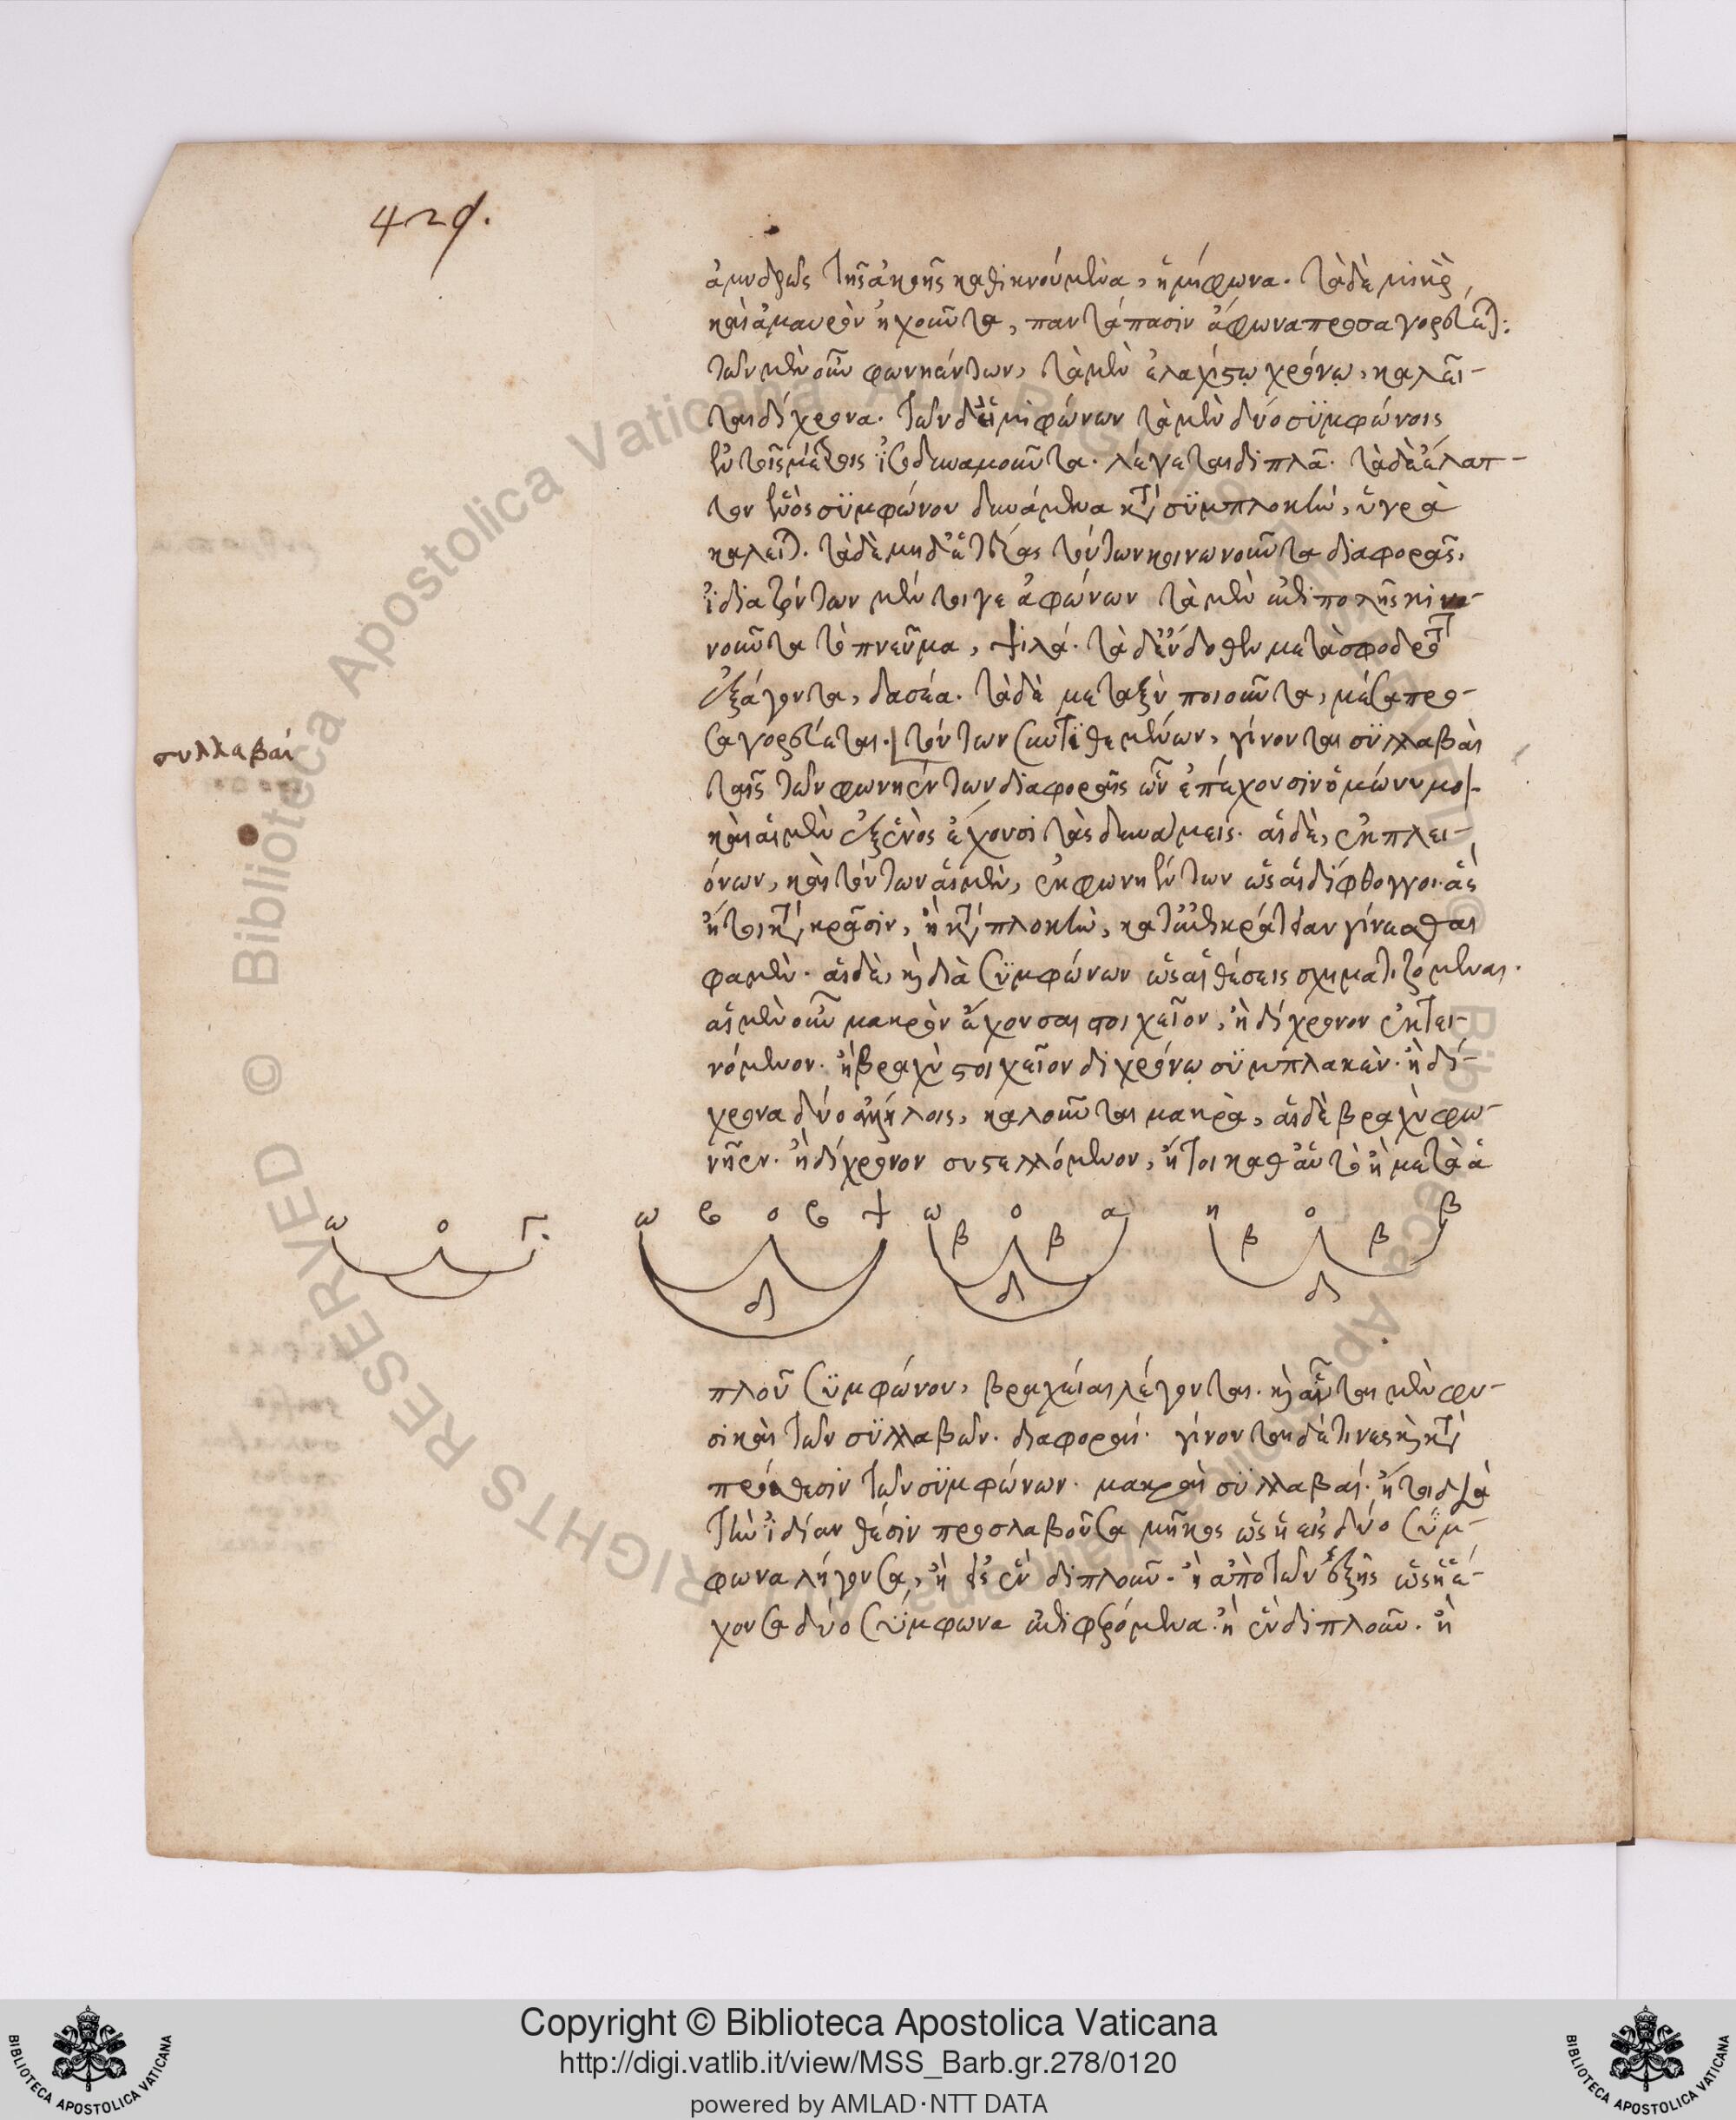 429.
ἀμυδρῶς τῆς ἀκοῆς καθικνούμενα, ἡμίφωνα. τὰ δὲ μικρὸν
καὶ ἀμαυρὸν ἠχοῦντα, παντάπασιν ἄφωνα προσαγορεύεται:
τῶν μὲν οὖν φωνηέντων, τὰ μὲν ἐλαχίστῳ χρόνῳ, καλεῖ-
ται δίχρονα. τῶν δὲ ἡμιφώνων τὰ μὲν δύο συμφώνοις
ἐν τοῖς μέτροις ἰσοδυναμοῦντα. λέγεται διπλᾶ. τὰ δὲ ἔλατ-
τον ἑνὸς συμφώνου δυνάμενα κατὰ συμπλοκὴν, ὑγρὰ
καλεῖται. τὰ δὲ μηδετέρας τούτων κοινωνοῦντα διαφορᾶς,
ἴδια τῶν μέν τοι γε ἀφώνων τὰ μὲν ἐπιπολῆς κι
νοῦντα τὸ πνεῦμα, ψιλά. τὰ δ' ἔνδοθεν μετὰ σφοδρότητος
ἐξάγοντα, δασέα. τὰ δὲ μεταξὺ ποιοῦντα, μέσα προ-
σαγορεύεται. τούτων συντιθεμένων, γίνονται συλλαβαὶ
ταῖς τῶν φωνηέντων διαφοραῖς ὧν ἐπέχουσιν ὁμώνυμοι.
καὶ αἱ μὲν ἐξ ἑνὸς ἔχουσι τὰς δυνάμεις. αἱ δὲ, ἐκ πλει-
όνων, καὶ τούτων αἱ μὲν, ἐκ φωνηέντων ὡς αἱ δίφθογγοι. ἃς
ἤτοι κατὰ κρᾶσιν, ἢ κατὰ πλοκὴν, κατ' ἐπικράτειαν γίνεσθαι
φαμὲν. αἱ δὲ, καὶ διὰ συμφώνων ὡς αἱ θέσεις σχηματιζόμεναι.
αἱ μὲν οὖν μακρὸν ἔχουσαι στοιχεῖον, ἢ δίχρονον ἐκτει-
νόμενον. ἢ βραχὺ στοιχεῖον διχρόνῳ συμπλακὲν. ἢ δί-
χρονα δύο ἀλλήλοις, καλοῦνται μακρὰ, αἱ δὲ βραχὺ φω-
νῆεν. ἢ δίχρονον συστελλόμενον, ἤτοι καθ' αὑτὸ ἢ μετὰ ἁ
συλλαβαί
ω ο Γ.
ω ϛ ο ϛ ψ ω ο α η ο β
β β β β
δ δ δ
πλοῦ συμφώνου, βραχεῖαι λέγονται. καὶ αὗται μὲν φυ-
σικαὶ τῶν συλλαβῶν. διαφοραί. γίνονται δέ τινες καὶ κατὰ
πρόσθεσιν τῶν συμφώνων. μακραὶ συλλαβαί. ἤτοι διὰ
τὴν ἰδίαν θέσιν προσλαβοῦσα μῆκος ὡς ἡ εἰς δύο σύμ-
φωνα λήγουσα, ἢ εἰς ἓν διπλοῦν. ἢ ἀπὸ τῶν ἑξῆς ὡς ἡ ἔ-
χουσα δύο σύμφωνα ἐπιφερόμενα. ἢ ἓν διπλοῦν. ἢ
Copyright © Biblioteca Apostolica Vaticana
http://digi.vatlib.it/view/MSS_Barb.gr.278/0120
powered by AMLAD·NTT DATA
BIBLIOTECA APOSTOLICA VATICANA
BIBLIOTECA APOSTOLICA VATICANA